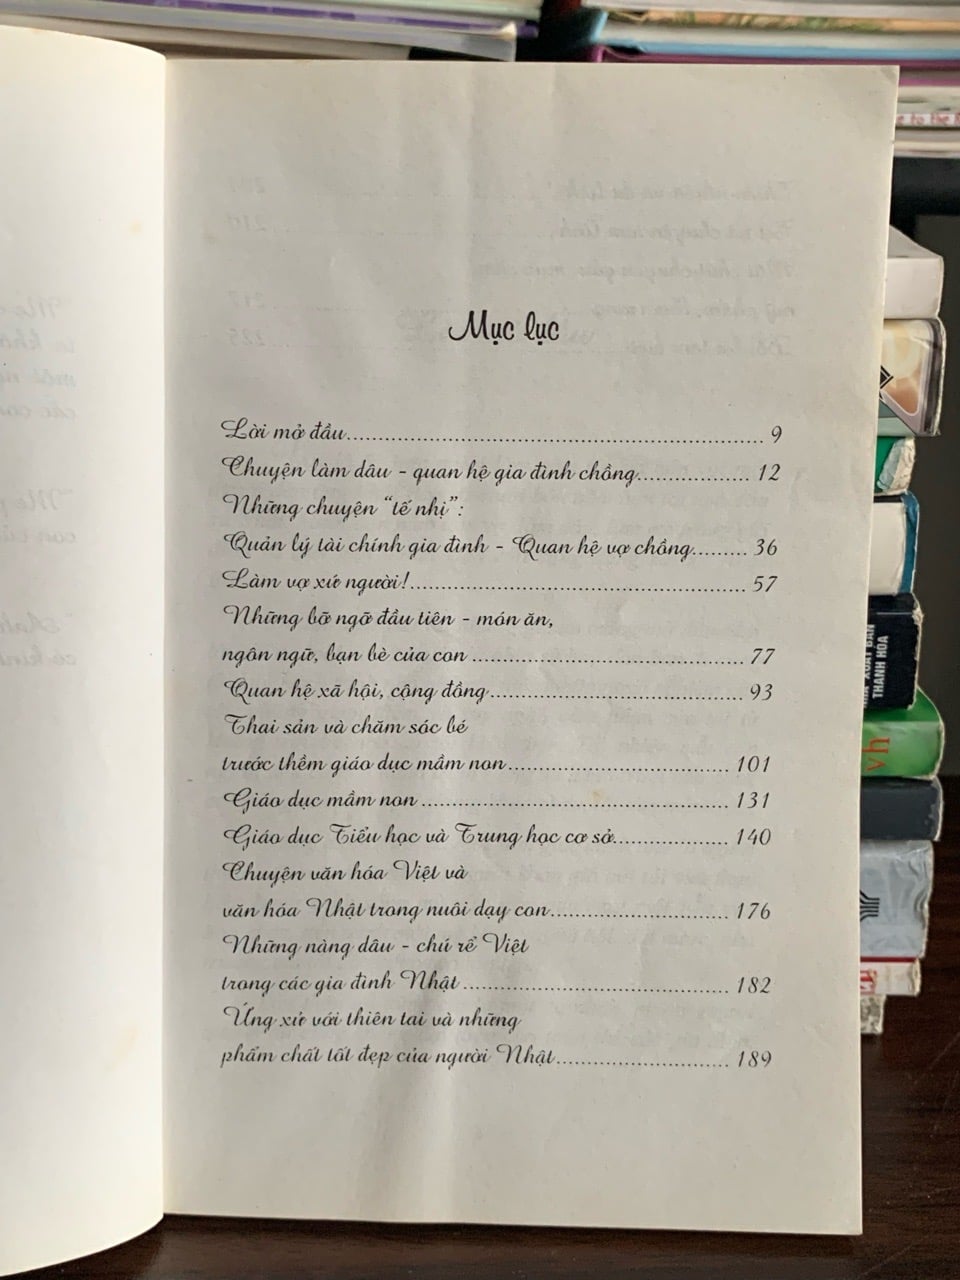 Mục lục
Lời mở đầu........ 9
Chuyện làm dâu - quan hệ gia đình chồng........ 12
Những chuyện “tế nhị”:
Quản lý tài chính gia đình - Quan hệ vợ chồng........ 36
Làm vợ xứ người!........ 57
Những bỡ ngỡ đầu tiên - món ăn,
ngôn ngữ, bạn bè của con ........ 77
Quan hệ xã hội, cộng đồng........ 93
Thai sản và chăm sóc bé
trước thềm giáo dục mầm non........ 101
Giáo dục mầm non ........ 131
Giáo dục Tiểu học và Trung học cơ sở........ 140
Chuyện văn hóa Việt và
văn hóa Nhật trong nuôi dạy con........ 176
Những nàng dâu - chú rể Việt
trong các gia đình Nhật ........ 182
Ứng xử với thiên tai và những
phẩm chất tốt đẹp của người Nhật........ 189
XUẤT BẢN
THANH HÓA
vh